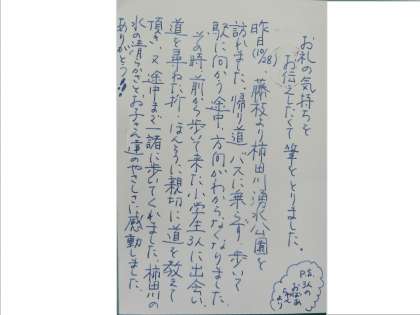 お礼の気持ちを
お伝えしたくて筆をとりました。
昨日(10/28)藤枝より柿田川湧水公園を
訪れました。帰り道バスに乗らず、歩いて
駅に向かう途中、方向がわからなくなりました。
その時、前から歩いて来た小学生3人に出会い、
道を尋ねた所、ほんとうに親切に道を教えて
頂き、又途中まで一諸に歩いてくれました。柿田川の
水の清らかさとお子さん達のやさしさに感動しました。
ありがとう!!
P.S. 3人の